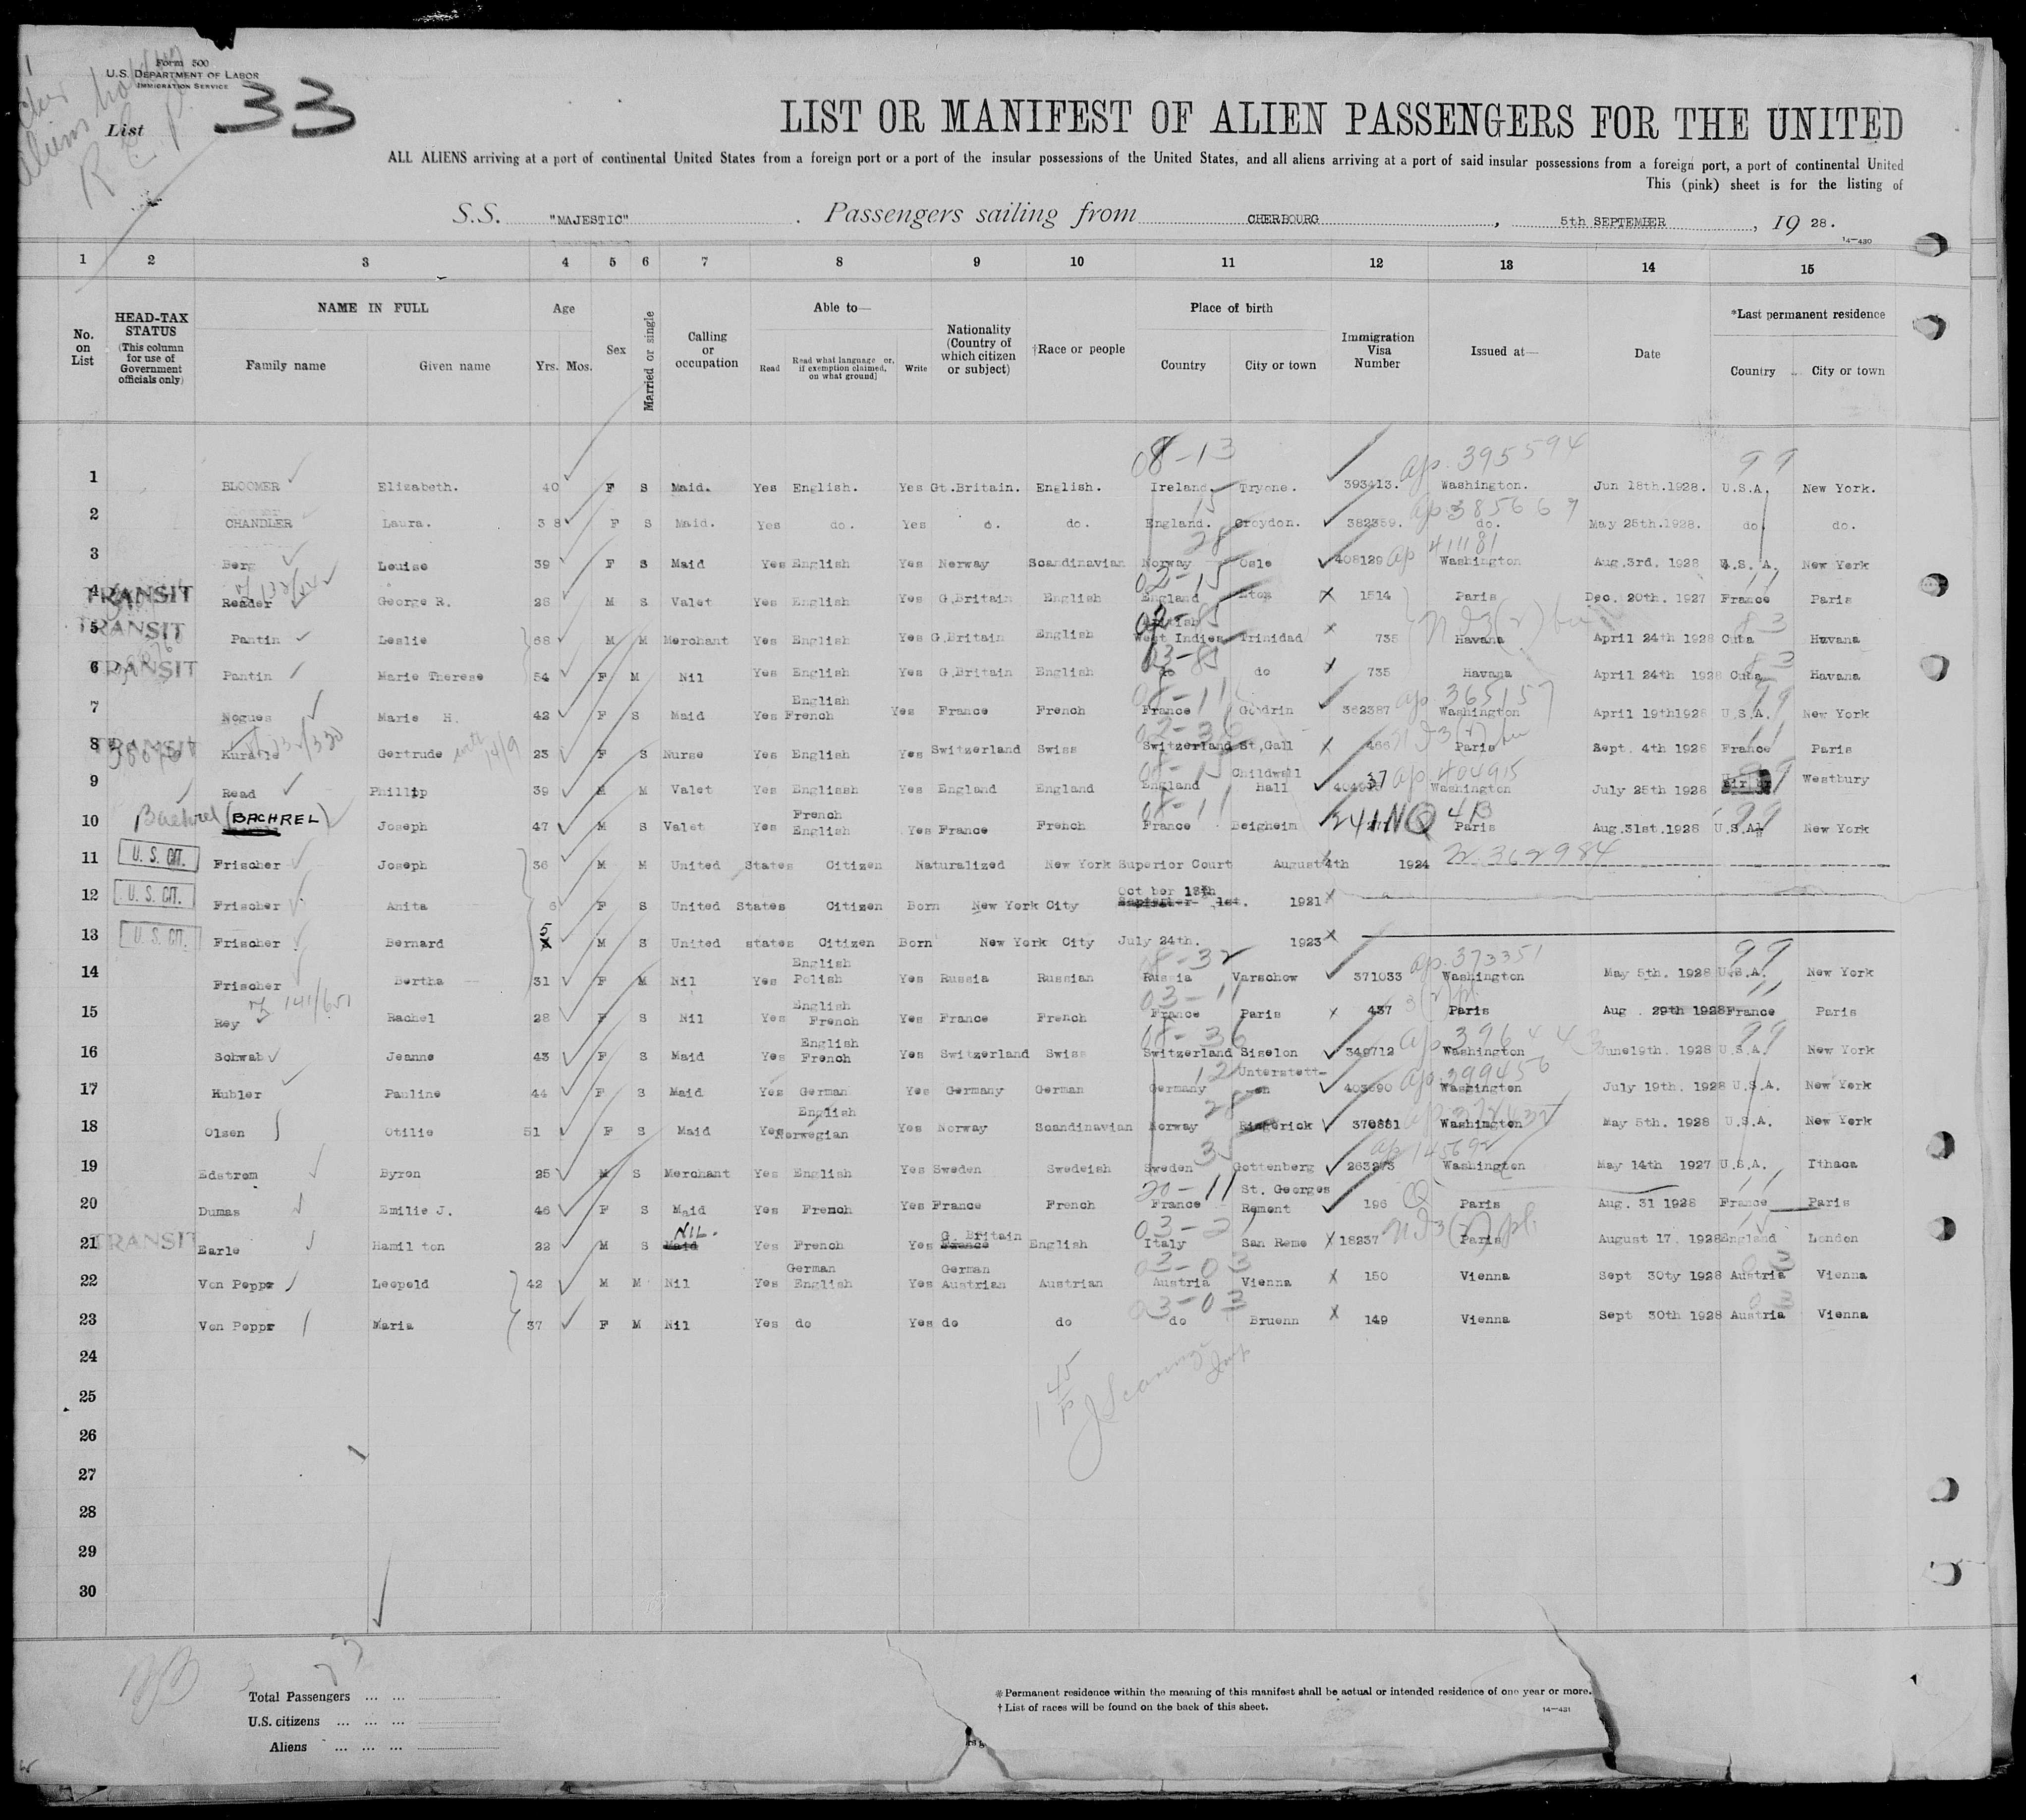 Form 500
U.S. DEPARTMENT OF LABOR
IMMIGRATION SERVICE
List 33
LIST OR MANIFEST OF ALIEN PASSENGERS FOR THE UNITED
ALL ALIENS arriving at a port of continental United States from a foreign port or a port of the insular possessions of the United States, and all aliens arriving at a port of said insular possessions from a foreign port, a port of continental United
This (pink) sheet is for the listing of
S.S. "MAJESTIC". Passengers sailing from CHERBOURG, 5th SEPTEMBER, 1928.
14—430
1 2 3 4 5 6 7 8 9 10 11 12 13 14 15
No. on List HEAD-TAX STATUS (This column for use of Government officials only) NAME IN FULL Family name Given name Age Yrs. Mos. Sex Married or single Calling or occupation Able to— Read Read what language or, if exemption claimed, on what ground] Write Nationality (Country of which citizen or subject) †Race or people Place of birth Country City or town Immigration Visa Number Issued at— Date *Last permanent residence Country City or town
08-13 ap. 395594 99
1 BLOOMER Elizabeth. 40 F S Maid. Yes English. Yes Gt.Britain. English. Ireland. Tryone. 393413. Washington. Jun 18th.1928. U.S.A. New York.
15 ap. 385667
2 CHANDLER Laura. 38 F S Maid. Yes do. Yes do. England. Croydon. 382359. do. May 25th.1928. do. do.
28 ap 41181
3 Berg Louise 39 F S Maid Yes English Yes Norway Scandinavian Norway Oslo 408129 Washington Aug.3rd. 1928 U.S. A. New York
02-15 11
4 TRANSIT Reader George R. 28 M S Valet Yes English Yes G.Britain English England Eton X 1514 Paris Dec. 20th. 1927 France Paris
5 TRANSIT Pantin Leslie 68 M M Merchant Yes English Yes G.Britain English British West Indies Trinidad X 735 Havana April 24th 1928 Cuba Havana
03-85
6 TRANSIT Pantin Marie Therese 54 F M Nil Yes English Yes G.Britain English do do X 735 Havana April 24th 1928 Cuba Havana
08-11 ap 365157 99
7 Nogues Marie H. 42 F S Maid Yes English French Yes France French France Goudrin 362387 Washington April 19th1928 U.S.A. New York
02-36 11
8 TRANSIT Gertrude 23 F S Nurse Yes English Yes Switzerland Swiss Switzerland St,Gall X 466 Paris Sept. 4th 1928 France Paris
08-15 ap. 404915 99
9 Read Phillip 39 M M Valet Yes Engliseh Yes England England England Childwall Hall Washington July 25th 1928 Westbury
08-11 99
10 Bachrel (BACHREL) Joseph 47 M S Valet Yes French English Yes France French France Beigheim 241NQ 413 Paris Aug.31st.1928 U.S.A. New York
11 U. S. CIT. Frischer Joseph 36 M M United States Citizen Naturalized New York Superior Court August 4th 1924 362984
12 U. S. CIT. Frischer Anita 6 F S United States Citizen Born New York City Oct ber 18th September 1st. 1921 X
13 U. S. CIT. Frischer Bernard 5 M S United states Citizen Born New York City July 24th. 1923 X
08-32 ap. 373351 99
14 Frischer Bertha 31 F M Nil Yes English Polish Yes Russia Russian Russia Varschow 371033 Washington May 5th. 1928 U.S.A. New York
141/651 03-11 11
15 Rey Rachel 28 F S Nil Yes English French Yes France French France Paris X 437 Paris Aug . 29th 1928 France Paris
08-36 99
16 Schwab Jeanne 43 F S Maid Yes English French Yes Switzerland Swiss Switzerland Siselon 349712 Washington June19th. 1928 U.S.A. New York
12 ap. 399456
17 Hubler Pauline 44 F S Maid Yes German English Yes Germany German Germany Unterstett- 403690 Washington July 19th. 1928 U.S.A. New York
28
18 Olsen Otilie 51 F S Maid Yes Norwegian Yes Norway Scandinavian Norway Ringerick 370881 Washington May 5th. 1928 U.S.A. New York
35 ap 145692
19 Edstrom Byron 25 M S Merchant Yes English Yes Sweden Swedeish Sweden Gottenberg Washington May 14th 1927 U.S.A. Ithaca
20-11 11
20 Dumas Emilie J. 46 F S Maid Yes French Yes France French France St. Georges Remont 196 Paris Aug. 31 1928 France Paris
21 TRANSIT Earle Hamilton 22 M S NIL. Maid Yes French Yes G. Britain France English Italy San Remo X 18237 Paris August 17. 1928 England London
03-03 03
22 Von Poppr Leopold 42 M M Nil Yes German English Yes German Austrian Austrian Austria Vienna X 150 Vienna Sept 30ty 1928 Austria Vienna
03-03 03
23 Von Poppr Maria 37 F M Nil Yes do Yes do do do Bruenn X 149 Vienna Sept 30th 1928 Austria Vienna
24
25
26
27
28
29
30
Total Passengers ... ...
U.S. citizens ... ... ...
Aliens ... ... ...
*Permanent residence within the meaning of this manifest shall be actual or intended residence of one year or more.
†List of races will be found on the back of this sheet.
14—431